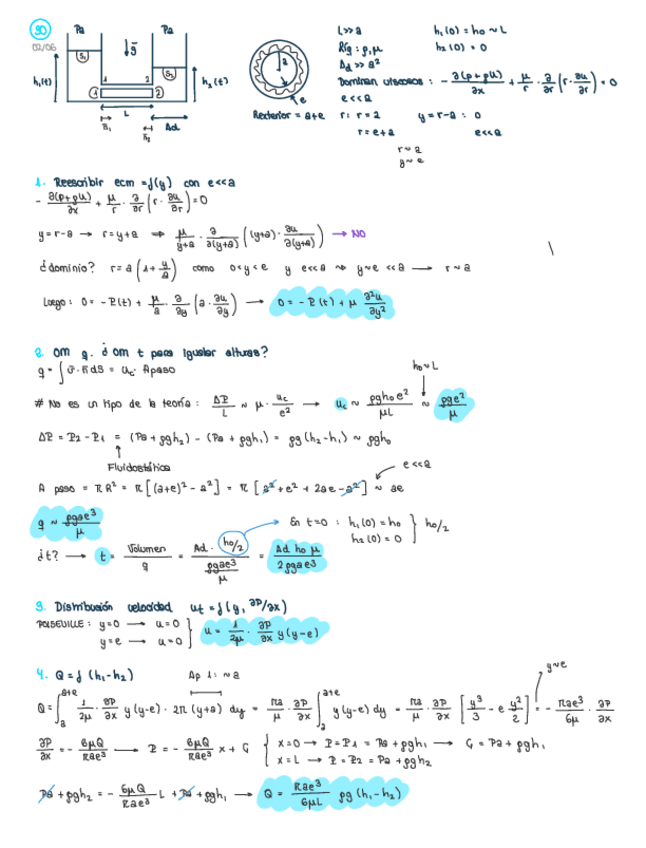 90
02/06
Pa Pa
g
S₁ S₂
h₁(t) h₂(t)
1 2
① ②
L
Ad
a
e
Rexterior = a+e
L>>a h₁(0) = h₀ ~ L
ρ, μ h₂(0) = 0
Ad >> a²
Dominan viscosos : - ∂(p+ρU)/∂x + μ/r · ∂/∂r (r · ∂u/∂r) = 0
e<<a
r: r=a y=r-a : 0
r=e+a e<<a
r~a
y~e
1. Reescribir ecm =f(y) con e<<a
- ∂(p+ρU)/∂x + μ/r · ∂/∂r (r · ∂u/∂r) = 0
y=r-a → r=y+a ⇒ μ/(y+a) · ∂/∂(y+a) ((y+a) · ∂u/∂(y+a)) → NO
¿dominio? r= a (1+ y/a) como 0<y<e y e<<a ⇒ y~e <<a → r~a
Luego: 0= -P(t) + μ/a · ∂/∂y (a · ∂u/∂y) → 0= -P(t) + μ ∂²u/∂y²
2. OM q. ¿ OM t para igualar alturas?
h₀~L
q= ∫ v·n dS = uc · Apaso
# No es un tipo de la teoría : ΔP/L ~ μ · uc/e² → uc ~ ρgh₀e²/μL ~ ρge²/μ
ΔP = P2 - P1 = (Pa + ρgh₂) - (Pa + ρgh₁) = ρg (h₂-h₁) ~ ρgh₀
Fluidostática
e<<a
A paso = πR² = π[(a+e)² - a²] = π[a²+e² + 2ae - a²] ~ ae
q ~ ρgae³/μ
En t=0 : h₁(0) = h₀
h₂(0) = 0 } h₀/2
¿t? → t = Volumen/q = Ad · h₀/2 / (ρgae³/μ) = Ad h₀ μ / 2ρgae³
3. Distribución velocidad ut = f(y, ∂P/∂x)
POISEUILLE : y=0 → u=0
y=e → u=0 } u = 1/2μ · ∂P/∂x y(y-e)
4. Q=f (h₁-h₂) Ap 1: ~a y~e
Q= ∫ₐᵃ⁺ᵉ 1/2μ · ∂P/∂x y(y-e) · 2π (y+a) dy = πa/μ · ∂P/∂x ∫ₐᵃ⁺ᵉ y(y-e) dy = πa/μ · ∂P/∂x [y³/3 - e y²/2] = - πae³/6μ · ∂P/∂x
∂P/∂x = - 6μQ/πae³ → P = - 6μQ/πae³ x + C { x=0 → P=P1 = Pa + ρgh₁ → C = Pa + ρgh₁
x=L → P=P2 = Pa + ρgh₂
Pa + ρgh₂ = - 6μQ/πae³ L + Pa + ρgh₁ → Q = πae³/6μL ρg (h₁-h₂)